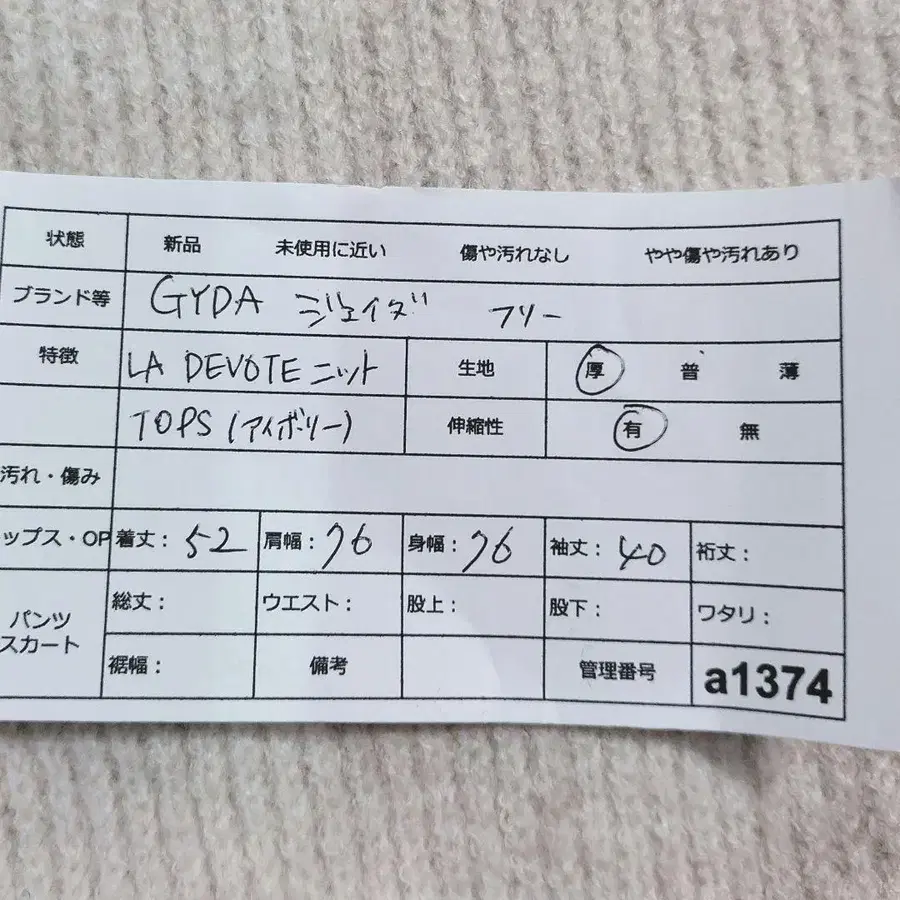 状態 新品 未使用に近い 傷や汚れなし やや傷や汚れあり
ブランド等 GYDA ジェイダ フリー
特徴 LA DEVOTE ニット 生地 厚 普 薄
TOPS (アイボリー) 伸縮性 有 無
汚れ・傷み
ップス・OP 着丈: 52 肩幅: 76 身幅: 76 袖丈: 40 裄丈:
パンツ
スカート
総丈: ウエスト: 股上: 股下: ワタリ:
裾幅: 備考 管理番号 a1374